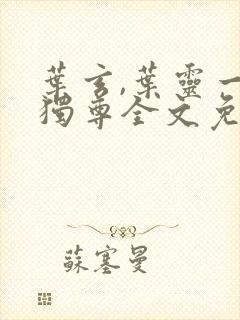 葉玄,葉靈一
獨尊全文免
蘇塞曼